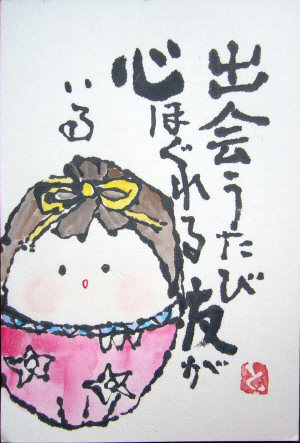 出会うたび
心ほぐれる友が
いる
と